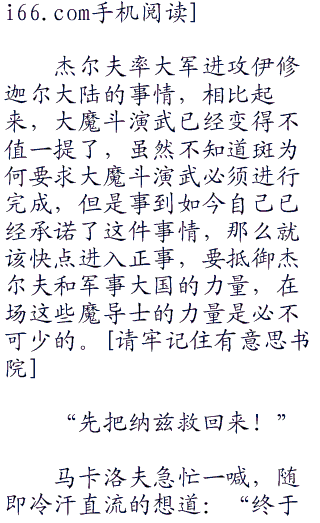 i66.com手机阅读]
杰尔夫率大军进攻伊修
迦尔大陆的事情，相比起
来，大魔斗演武已经变得不
值一提了，虽然不知道斑为
何要求大魔斗演武必须进行
完成，但是事到如今自己已
经承诺了这件事情，那么就
该快点进入正事，要抵御杰
尔夫和军事大国的力量，在
场这些魔导士的力量是必不
可少的。[请牢记住有意思书
院]
“先把纳兹救回来！”
马卡洛夫急忙一喊，随
即冷汗直流的想道：“终于